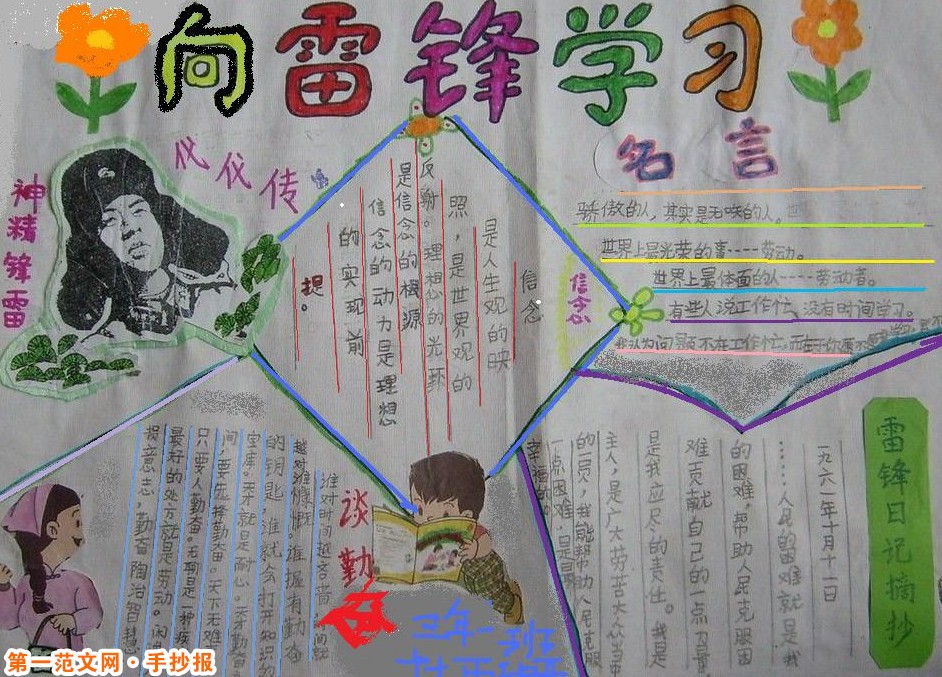 向雷锋学习
代代传
神精锋雷
名言
骄傲的人，其实是无味的人。
世界上最光荣的事----劳动。
世界上最体面的人----劳动者。
有些人说工作忙、没有时间学习。
我认为问题不在工作忙，而
信念
信念
是人生观的映
照，是世界观的
反射。理想的光环
是信念的根源
信念的动力是理想
的实现前
提。
雷锋日记摘抄
一九六一年十月十一日
……人民的困难就是我
的困难，帮助人民克服困
难贡献自己的一点力量
是我应尽的责任。我是
主人，是广大劳苦大众当中
的一员，我能帮助人民克服
一点困难，是最
幸福的。
谈勤
谁对时间越吝啬，时间就
越对谁慷慨。谁握有勤奋
的钥匙，谁就会打开知识的
宝库。天才就是耐心。天才勤奋
间，要先择勤奋。天下无难
只要人勤奋。无聊是一种疾
最好的处方就是劳动。闲
损意志，勤奋陶冶智慧
三年一班
第一范文网·手抄报